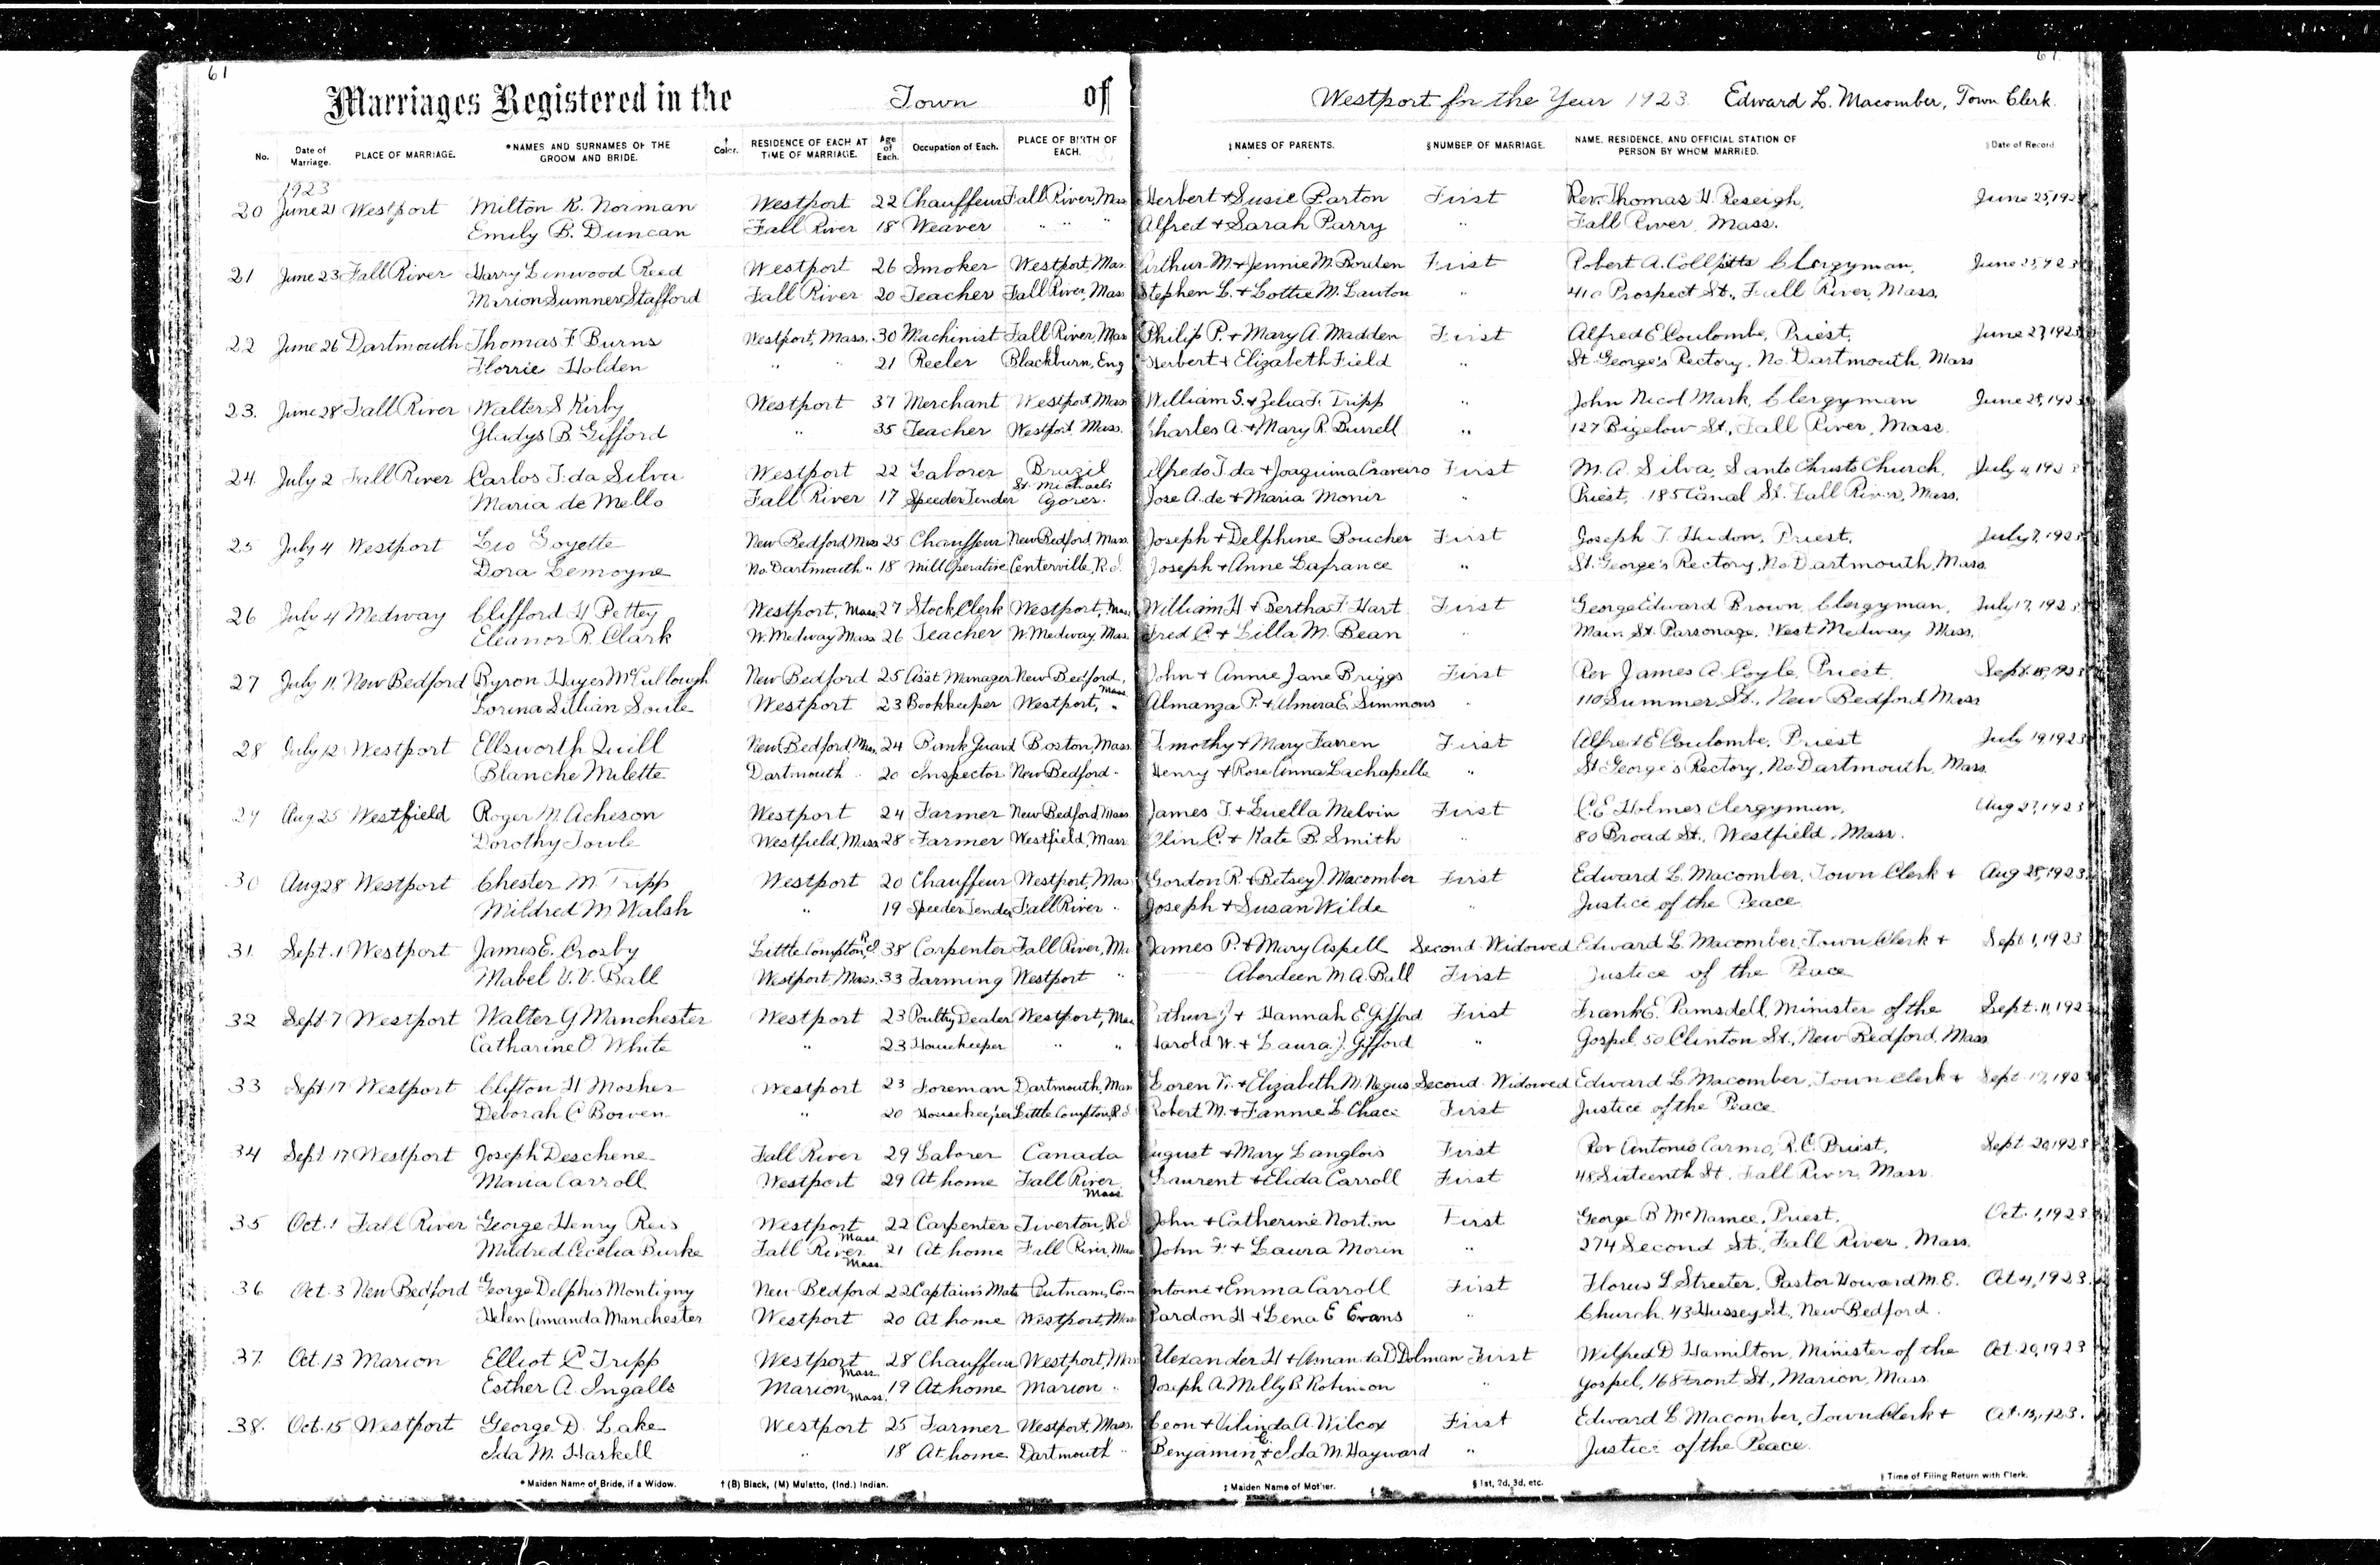 61 61
Marriages Registered in the Town of Westport for the Year 1923. Edward L. Macomber, Town Clerk.
No. Date of Marriage. PLACE OF MARRIAGE. *NAMES AND SURNAMES OF THE GROOM AND BRIDE. † Color. RESIDENCE OF EACH AT TIME OF MARRIAGE. Age of Each. Occupation of Each. PLACE OF BIRTH OF EACH. ‡NAMES OF PARENTS. §NUMBER OF MARRIAGE. NAME, RESIDENCE, AND OFFICIAL STATION OF PERSON BY WHOM MARRIED. ‖Date of Record
1923
20 June 21 Westport Milton R. Norman Westport 22 Chauffeur Fall River, Mass Herbert + Susie Parton First Rev. Thomas H. Reseigh, June 25, 1923
Emily B. Duncan Fall River 18 Weaver " " " Alfred + Sarah Parry " Fall River, Mass.
21 June 23 Fall River Harry Linwood Reed Westport 26 Smoker Westport, Mas. Arthur M. + Jennie M. Borden First Robert A. Collpitts Clergyman, June 25, 1923
Marion Sumner Stafford Fall River 20 Teacher Fall River, Mas Stephen L. + Lottie M. Lawton " 410 Prospect St., Fall River, Mass.
22 June 26 Dartmouth Thomas F. Burns Westport, Mass. 30 Machinist Fall River, Mass Philip P. + Mary A. Madden First Alfred E Coulombe, Priest, June 27, 1923
Florrie Holden " " 21 Reeler Blackburn, Eng Herbert + Elizabeth Field " St. George's Rectory, No. Dartmouth, Mass
23. June 28 Fall River Walter S Kirby Westport 37 Merchant Westport, Mass William S. + Zelia F. Tripp " John Nicol Mark, Clergyman June 28, 1923
Gladys B. Gifford " 35 Teacher Westport, Mass. Charles A. + Mary R. Durrell " 127 Bigelow St., Fall River, Mass.
24. July 2 Fall River Carlos T. da Silva Westport 22 Laborer Brazil Alfredo T. da + Joaquima Craveiro First M. A. Silva, Santo Christo Church, July 4, 1923
Maria de Mello Fall River 17 Speeder Tender St. Michaels Agores. Jose A. de + Maria Moniz " Priest, 185 Canal St. Fall River, Mass.
25 July 4 Westport Leo Goyette New Bedford Mass 25 Chauffeur New Bedford, Mass. Joseph + Delphine Boucher First Joseph T. Hudon, Priest, July 7, 1923
Dora Lemoyne No. Dartmouth " 18 Mill Operative Centerville, R.I. Joseph + Anne Lafrance " St. George's Rectory, No. Dartmouth, Mass
26 July 4 Medway Clifford H Pettey Westport, Mass. 27 Stock Clerk Westport, Mass William H + Bertha F. Hart First George Edward Brown, Clergyman, July 17, 1923
Eleanor R. Clark W. Medway Mass 26 Teacher W. Medway, Mas. Fred C. + Lilla M. Bean " Main St. Parsonage, West Medway Mass.
27 July 11. New Bedford Byron Hayes McCullough New Bedford 25 Asst Manager New Bedford, Mass. John + Annie Jane Briggs First Rev James A. Coyle, Priest. Sept. 18, 1923
Lorena Lillian Soule Westport 23 Bookkeeper Westport, " Almanza P. + Almira E. Simmons " 110 Summer St., New Bedford, Mass
28 July 12 Westport Ellsworth Quill New Bedford, Mass. 24 Bank Guard Boston, Mass. Timothy + Mary Farren First Alfred E Coulombe, Priest July 19, 1923
Blanche Milette Dartmouth " 20 Inspector New Bedford " Henry + Rose Anna Lachapelle " St George's Rectory, No. Dartmouth, Mass.
29 Aug 25 Westfield Roger M. Acheson Westport 24 Farmer New Bedford Mass. James T. + Luella Melvin First C. E Holmes Clergyman, Aug 27, 1923
Dorothy Towle Westfield, Mass 28 Farmer Westfield, Mass. Olin C. + Kate B. Smith " 80 Broad St., Westfield, Mass.
30 Aug 28 Westport Chester M. Tripp Westport 20 Chauffeur Westport, Mas Gordon R. + Betsey J. Macomber First Edward L. Macomber, Town Clerk + Aug 28, 1923.
Mildred M. Walsh " 19 Speeder Tender Fall River " Joseph + Susan Wilde " Justice of the Peace
31. Sept. 1 Westport James E. Crosby Little Compton, R.I. 38 Carpenter Fall River, Ma James P. + Mary Aspell Second Widowed Edward L. Macomber, Town Clerk + Sept 1, 1923
Mabel V. V. Ball Westport, Mass. 33 Farming Westport " Aberdeen M. A. Ball First Justice of the Peace
32 Sept 7 Westport Walter G Manchester Westport 23 Poultry Dealer Westport, Mas Arthur J + Hannah E. Gifford First Frank E. Ramsdell, Minister of the Sept. 11, 1923
Catharine O. White " 23 Housekeeper " " Harold W. + Laura J. Gifford " Gospel, 50 Clinton St., New Bedford, Mass
33 Sept 17 Westport Clifton H Mosher Westport 23 Foreman Dartmouth, Mass Loren T. + Elizabeth M. Negus Second Widowed Edward L. Macomber, Town Clerk + Sept. 17, 1923
Deborah C Bowen " 20 Housekeeper Little Compton, R.I. Robert M. + Fannie L Chace First Justice of the Peace
34 Sept. 17 Westport Joseph Deschene Fall River 29 Laborer Canada August + Mary Langlois First Rev Antonio Carmo, R. C. Priest, Sept 20, 1923
Maria Carroll Westport 29 At home Fall River, Mass Laurent + Elida Carroll First 48 Sixteenth St. Fall River, Mass.
35 Oct. 1 Fall River George Henry Reis Westport Mass. 22 Carpenter Tiverton, R.I. John + Catherine Norton First George B McNamee, Priest. Oct. 1, 1923
Mildred Cecelea Burke Fall River Mass. 21 At home Fall River, Mass John F. + Laura Morin " 274 Second St., Fall River, Mass.
36 Oct. 3 New Bedford George Delphis Montigny New Bedford 22 Captain's Mate Putnam, Con Antoine + Emma Carroll First Florus L. Streeter, Pastor Howard M. E. Oct 4, 1923.
Helen Amanda Manchester Westport 20 At home Westport, Mass Pardon H + Lena E Evans " Church, 43 Hussey St., New Bedford.
37. Oct. 13 Marion Elliot C. Tripp Westport Mass. 28 Chauffeur Westport, Mass Alexander H + Amanda D Dolman First Wilfred D Hamilton, Minister of the Oct. 20, 1923
Esther A. Ingalls Marion, Mass. 19 At home Marion " Joseph A. Milly B. Robinson " Gospel, 168 Front St., Marion, Mass.
38. Oct. 15 Westport George D. Lake Westport 25 Farmer Westport, Mass. Leon + Vilinda A. Wilcox First Edward L. Macomber, Town Clerk +
Ida M. Haskell " 18 At home Dartmouth " Benjamin C. + Ida M. Hayward " Justice of the Peace.
*Maiden Name of Bride, if a Widow. †(B) Black, (M) Mulatto, (Ind.) Indian. ‡Maiden Name of Mother. §1st, 2d, 3d, etc. ‖Time of Filing Return with Clerk.